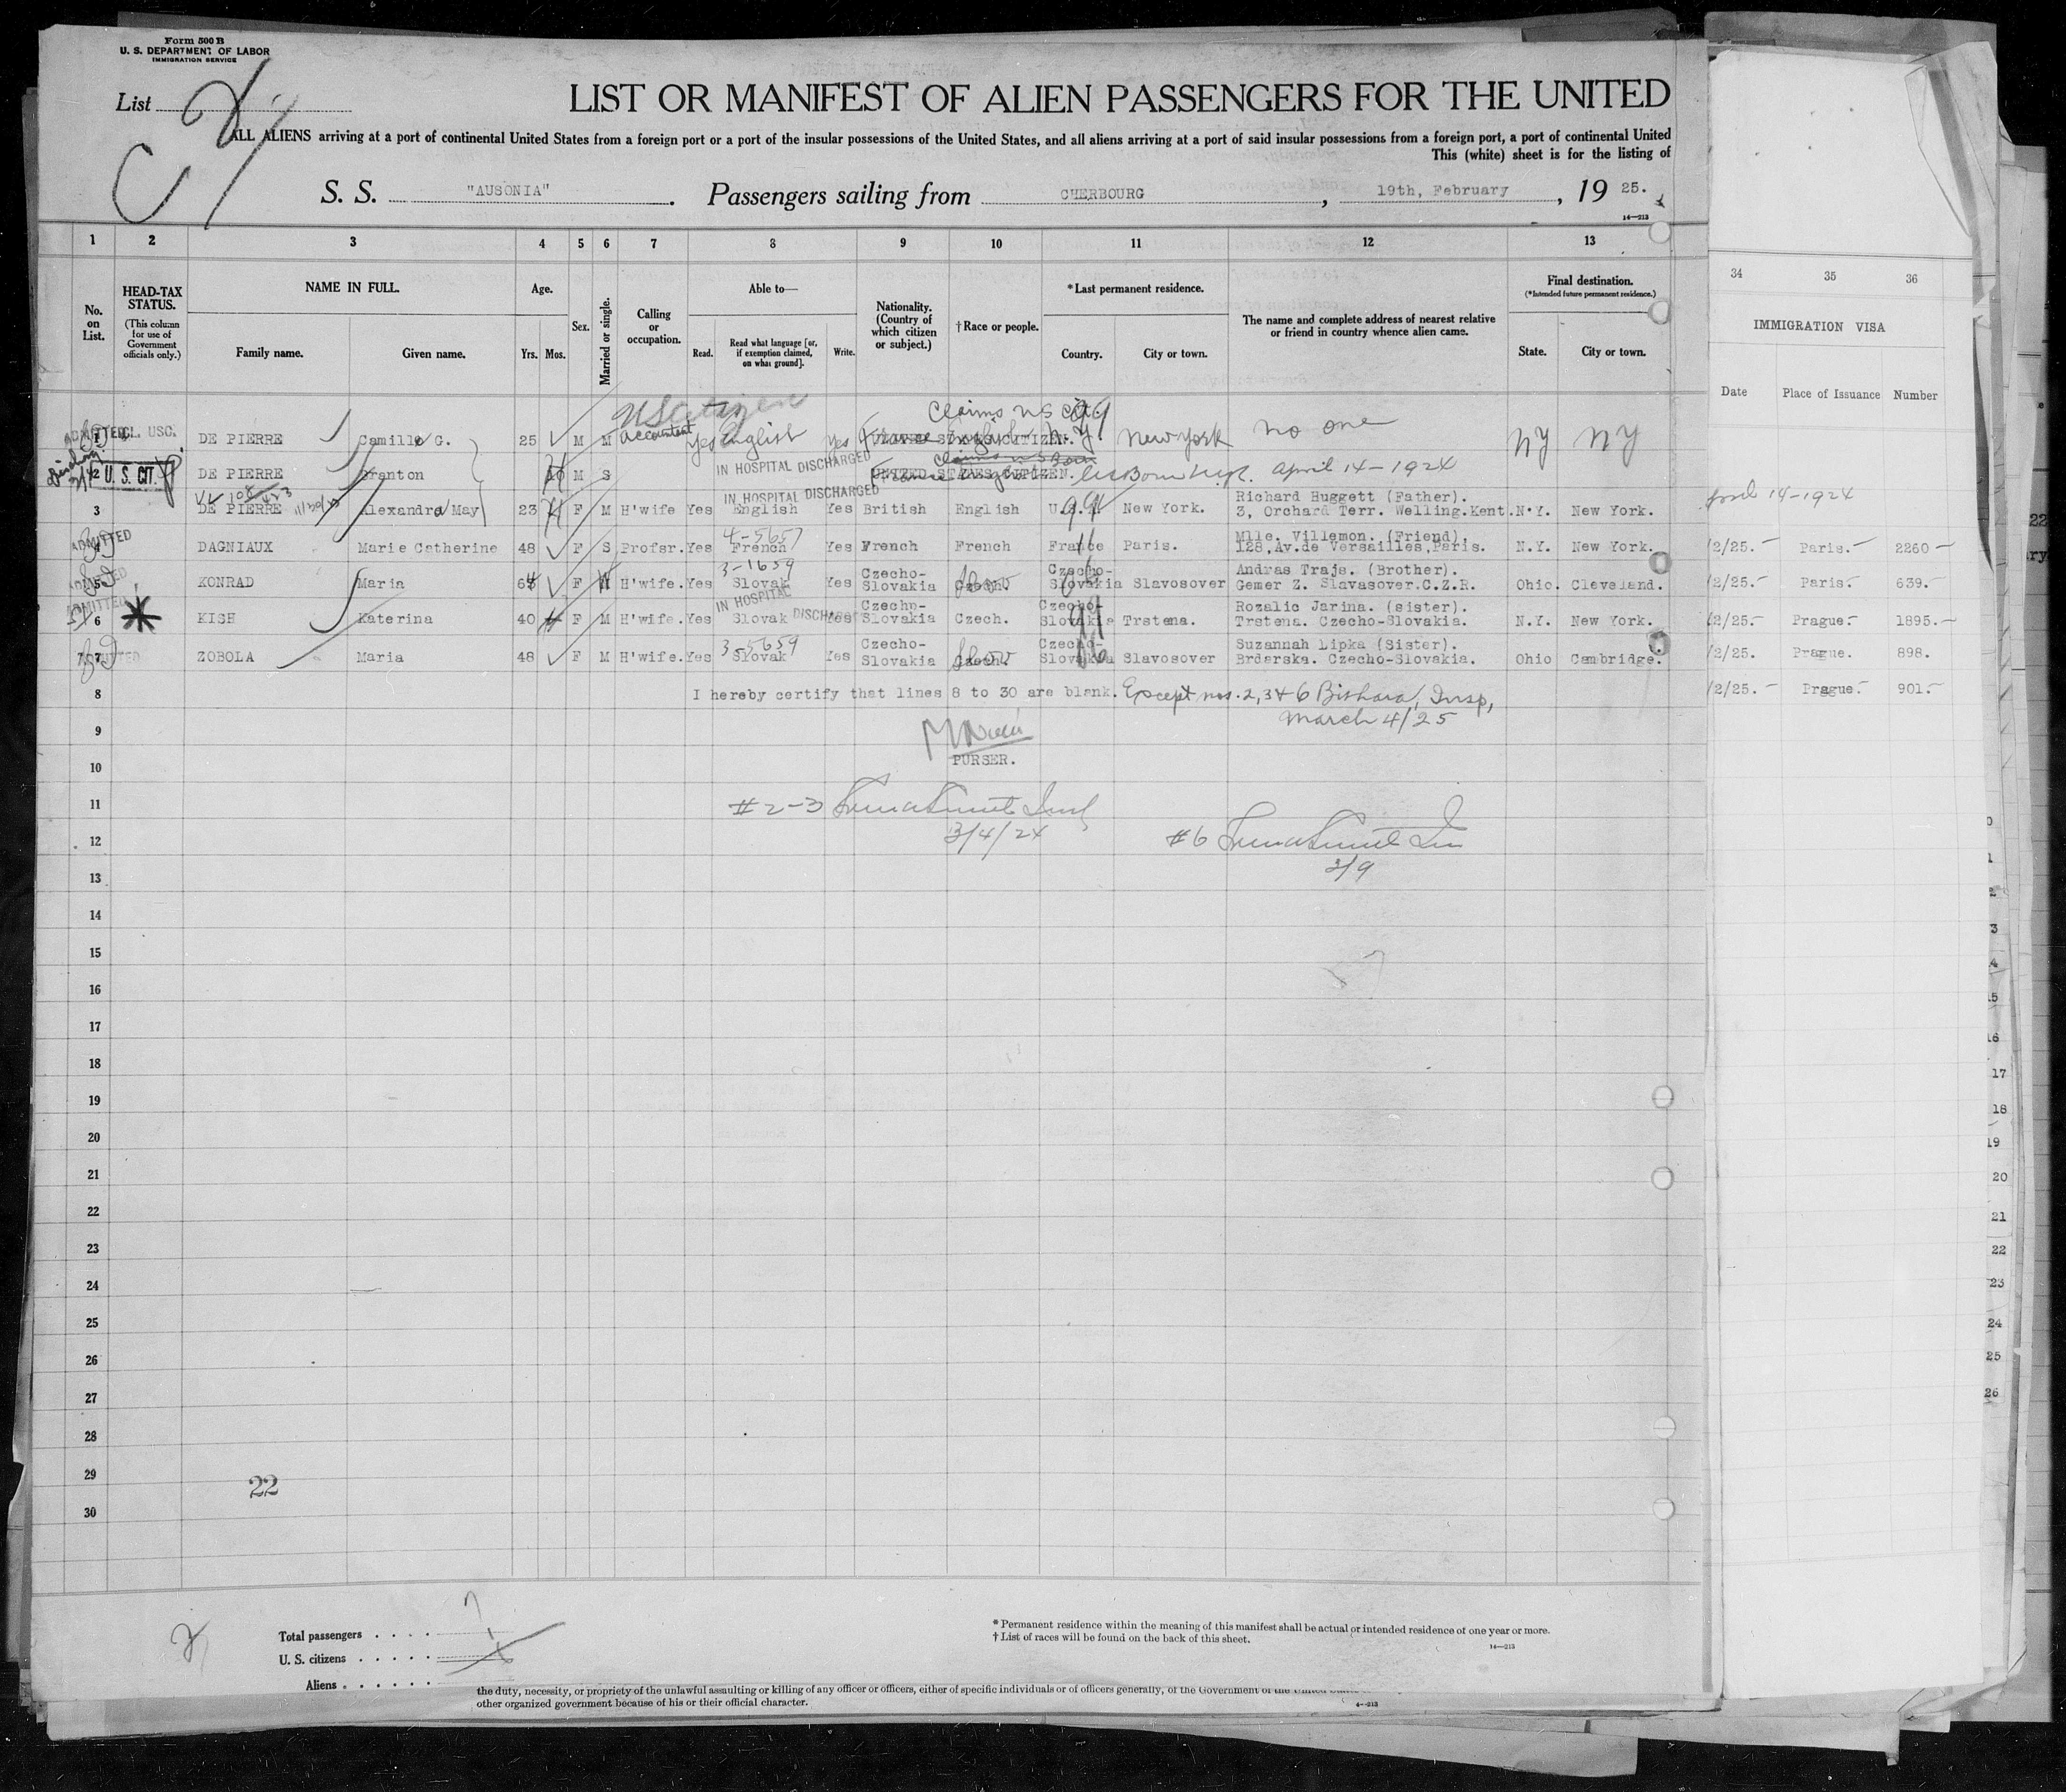 Form 500 B
U. S. DEPARTMENT OF LABOR
IMMIGRATION SERVICE
List
LIST OR MANIFEST OF ALIEN PASSENGERS FOR THE UNITED
ALL ALIENS arriving at a port of continental United States from a foreign port or a port of the insular possessions of the United States, and all aliens arriving at a port of said insular possessions from a foreign port, a port of continental United
This (white) sheet is for the listing of
S. S. "AUSONIA". Passengers sailing from CHERBOURG, 19th, February, 19 25.
14—213
1 2 3 4 5 6 7 8 9 10 11 12 13
No. on List.
HEAD-TAX STATUS.
(This column for use of Government officials only.)
NAME IN FULL.
Family name. Given name.
Age.
Yrs. Mos.
Sex.
Married or single.
Calling or occupation.
Able to—
Read. Read what language [or, if exemption claimed, on what ground]. Write.
Nationality. (Country of which citizen or subject.)
†Race or people.
*Last permanent residence.
Country. City or town.
The name and complete address of nearest relative or friend in country whence alien came.
Final destination.
(*Intended future permanent residence.)
State. City or town.
34 35 36
IMMIGRATION VISA
Date Place of Issuance Number
US Citizen Claims US Cit. 99
ADMITTED USC. 1 DE PIERRE Camille G. 25 M M accountant Yes English Yes UNITED STATES CITIZEN. N.Y. New York no one NY NY
2 U. S. CIT. DE PIERRE Branton 10 M S IN HOSPITAL DISCHARGED UNITED STATES CITIZEN. April 14-1924
IN HOSPITAL DISCHARGED
3 DE PIERRE Alexandra May 23 F M H'wife Yes English Yes British English New York. Richard Huggett (Father). 3, Orchard Terr. Welling.Kent. N.Y. New York. 14-1924
4-5657
ADMITTED 4 DAGNIAUX Marie Catherine 48 F S Profsr. Yes French Yes French French France Paris. Mlle. Villemon. (Friend). 128,Av.de Versailles,Paris. N.Y. New York. /2/25.- Paris.- 2260-
3-1659
ADMITTED 5 KONRAD Maria 64 F M H'wife. Yes Slovak Yes Czecho-Slovakia Czech. Slovak Czecho-Slovakia Slavosover Andras Trajs. (Brother). Gemer Z. Slavasover.C.Z.R. Ohio. Cleveland. /2/25.- Paris.- 639.-
IN HOSPITAL DISCHARGED
ADMITTED 6 KISH Katerina 40 F M H'wife. Yes Slovak Yes Czecho-Slovakia Czech. Czecho-Slovakia Trstena. Rozalie Jarina. (sister). Trstena. Czecho-Slovakia. N.Y. New York. /2/25.- Prague.- 1895.-
3-5659
ADMITTED 7 ZOBOLA Maria 48 F M H'wife. Yes Slovak Yes Czecho-Slovakia Czech. Slovak Czecho-Slovakia Slavosover Suzannah Lipka (Sister). Brdarska. Czecho-Slovakia. Ohio Cambridge. /2/25. Prague. 898.
8 I hereby certify that lines 8 to 30 are blank. Except nos. 2, 3 & 6 Bishara, Insp, /2/25.- Prague.- 901.-
March 4/25
9
PURSER.
10
11 #2-3
3/4/24
12 #6
3/9
13
14
15
16
17
18
19
20
21
22
23
24
25
26
27
28
29
22
30
Total passengers . . . . 7
U. S. citizens . . . . .
Aliens . . . . . .
* Permanent residence within the meaning of this manifest shall be actual or intended residence of one year or more.
† List of races will be found on the back of this sheet.
14—213
the duty, necessity, or propriety of the unlawful assaulting or killing of any officer or officers, either of specific individuals or of officers generally, of the Government of the United States
other organized government because of his or their official character.